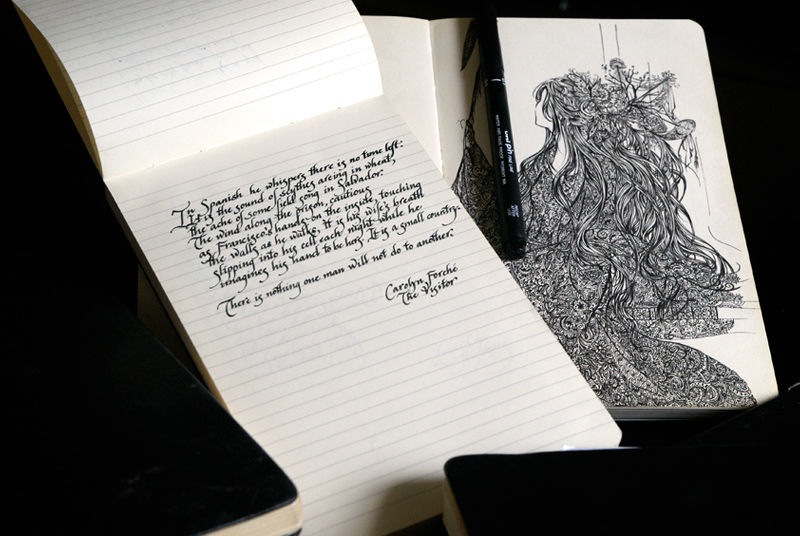 In Spanish he whispers there is no time left.
It is the sound of scythes arcing in wheat,
the ache of some field song in Salvador.
The wind along the prison, cautious
as Francisco's hands on the inside, touching
the walls as he walks, it is his wife's breath
slipping into his cell each night while he
imagines his hand to be hers. It is a small country.
There is nothing one man will not do to another.
Carolyn Forché
The Visitor
uni pin fine line